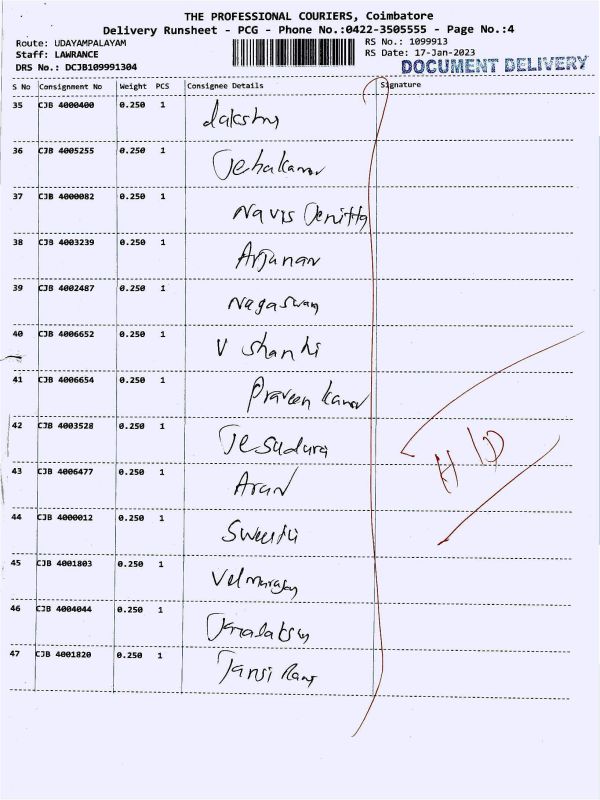 THE PROFESSIONAL COURIERS, Coimbatore
Delivery Runsheet - PCG - Phone No.:0422-3505555 - Page No.:4
Route: UDAYAMPALAYAM
Staff: LAWRANCE
DRS No.: DCJB109991304
RS No.: 1099913
RS Date: 17-Jan-2023
DOCUMENT DELIVERY
S No Consignment No Weight PCS Consignee Details Signature
35 CJB 4000400 0.250 1
36 CJB 4005255 0.250 1
37 CJB 4000082 0.250 1 Navis
38 CJB 4003239 0.250 1 Arjunan
39 CJB 4002487 0.250 1 Nagaswamy
40 CJB 4006652 0.250 1 V Shanthi
41 CJB 4006654 0.250 1 Praveen Kumar
42 CJB 4003528 0.250 1 Jesudura
43 CJB 4006477 0.250 1 Arun
44 CJB 4000012 0.250 1
45 CJB 4001803 0.250 1 Velmurugan
46 CJB 4004044 0.250 1
47 CJB 4001820 0.250 1 Jansi Rani